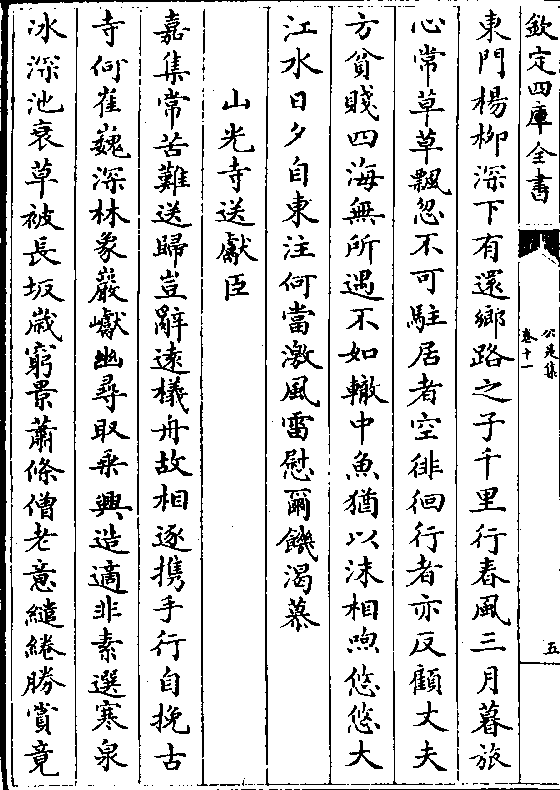 欽定四庫全書
公是集
卷十一
五
東門楊柳深下有還鄉路之子千里行春風三月暮旅
心常草草飄忽不可駐居者空徘徊行者亦反顧丈夫
方貧賤四海無所遇不如轍中魚猶以沫相喣悠悠大
江水日夕自東注何當激風雷慰爾饑渴慕
山光寺送獻臣
嘉集常苦難送歸豈辭遠檥舟故相逐攜手行自挽古
寺何崔巍深林象巖巘幽尋取乗興造適非素選寒泉
冰深池衰草被長坂嵗窮景蕭條僧老意繾綣勝賞竟